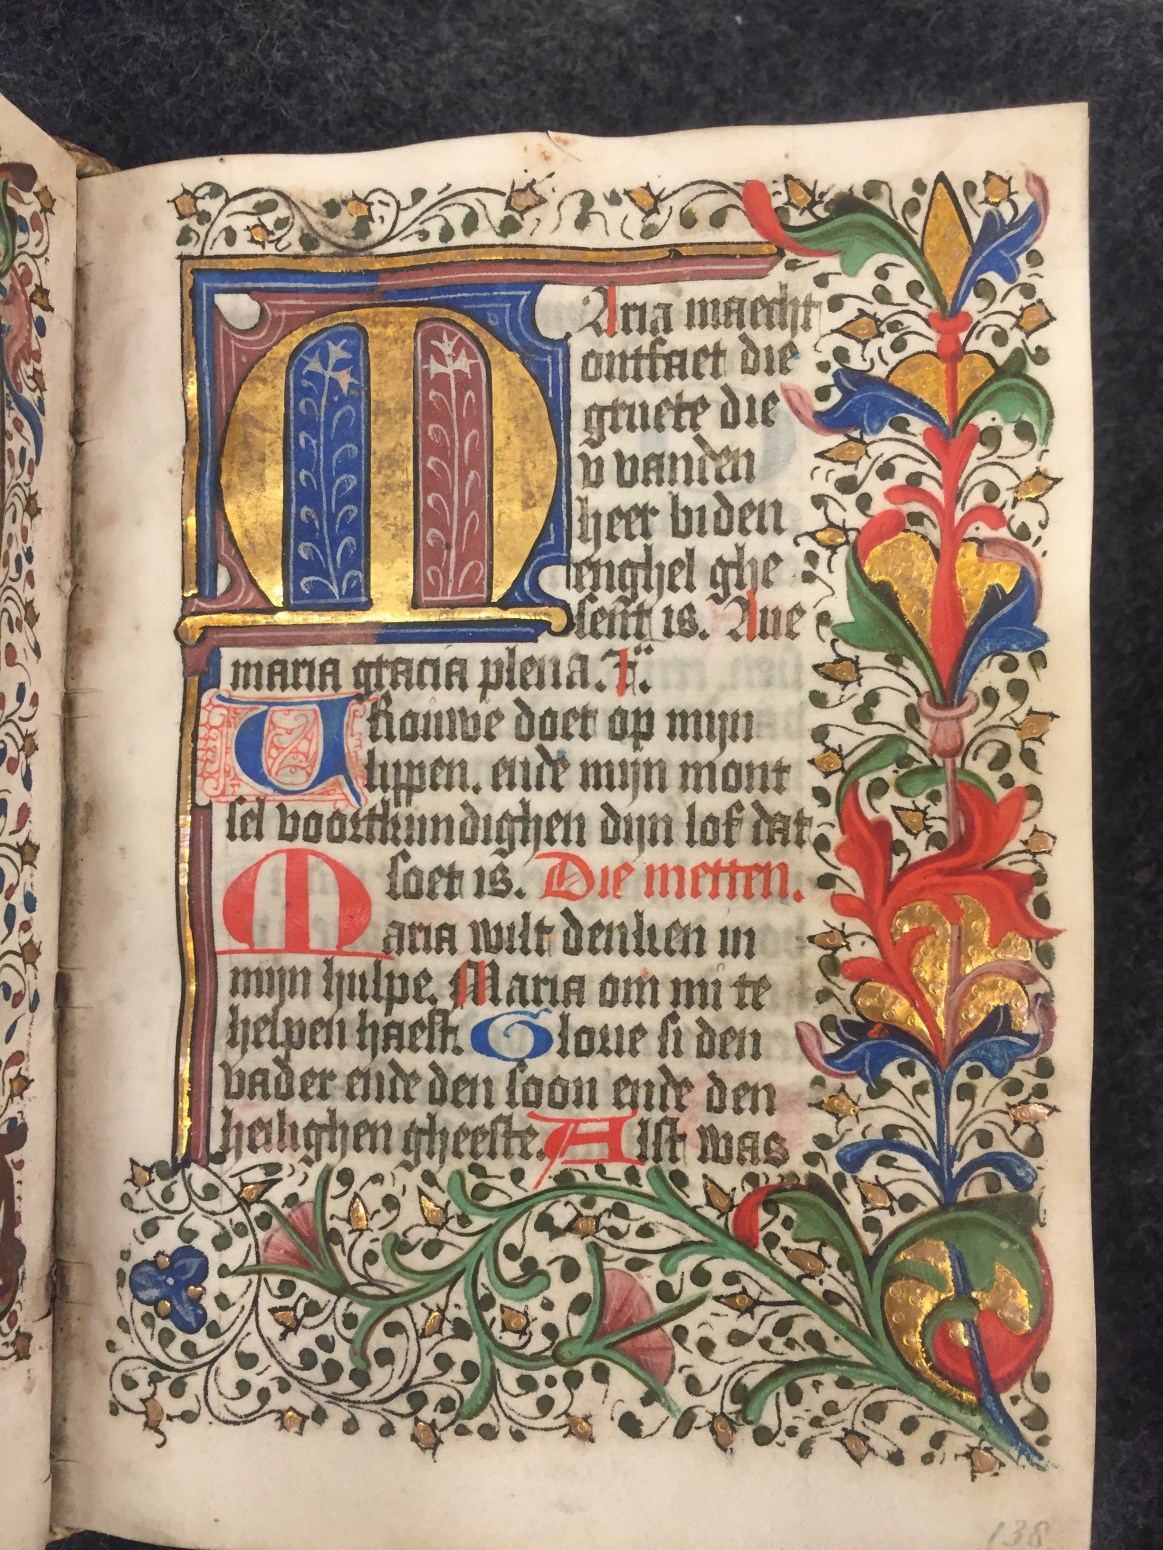 Maria maecht
ontfaet die
gruete die
v vanden
heer biden
enghel ghe
sent is. Aue
maria gracia plena.
Vrouwe doet op mijn
lippen. ende mijn mont
sel voortkundighen dijn lof dat
soet is. Die metten.
Maria wilt denken in
mijn hulpe. Maria om mi te
helpen haest. Glorie si den
vader ende den soon ende den
heilighen gheeste. Alst was
138